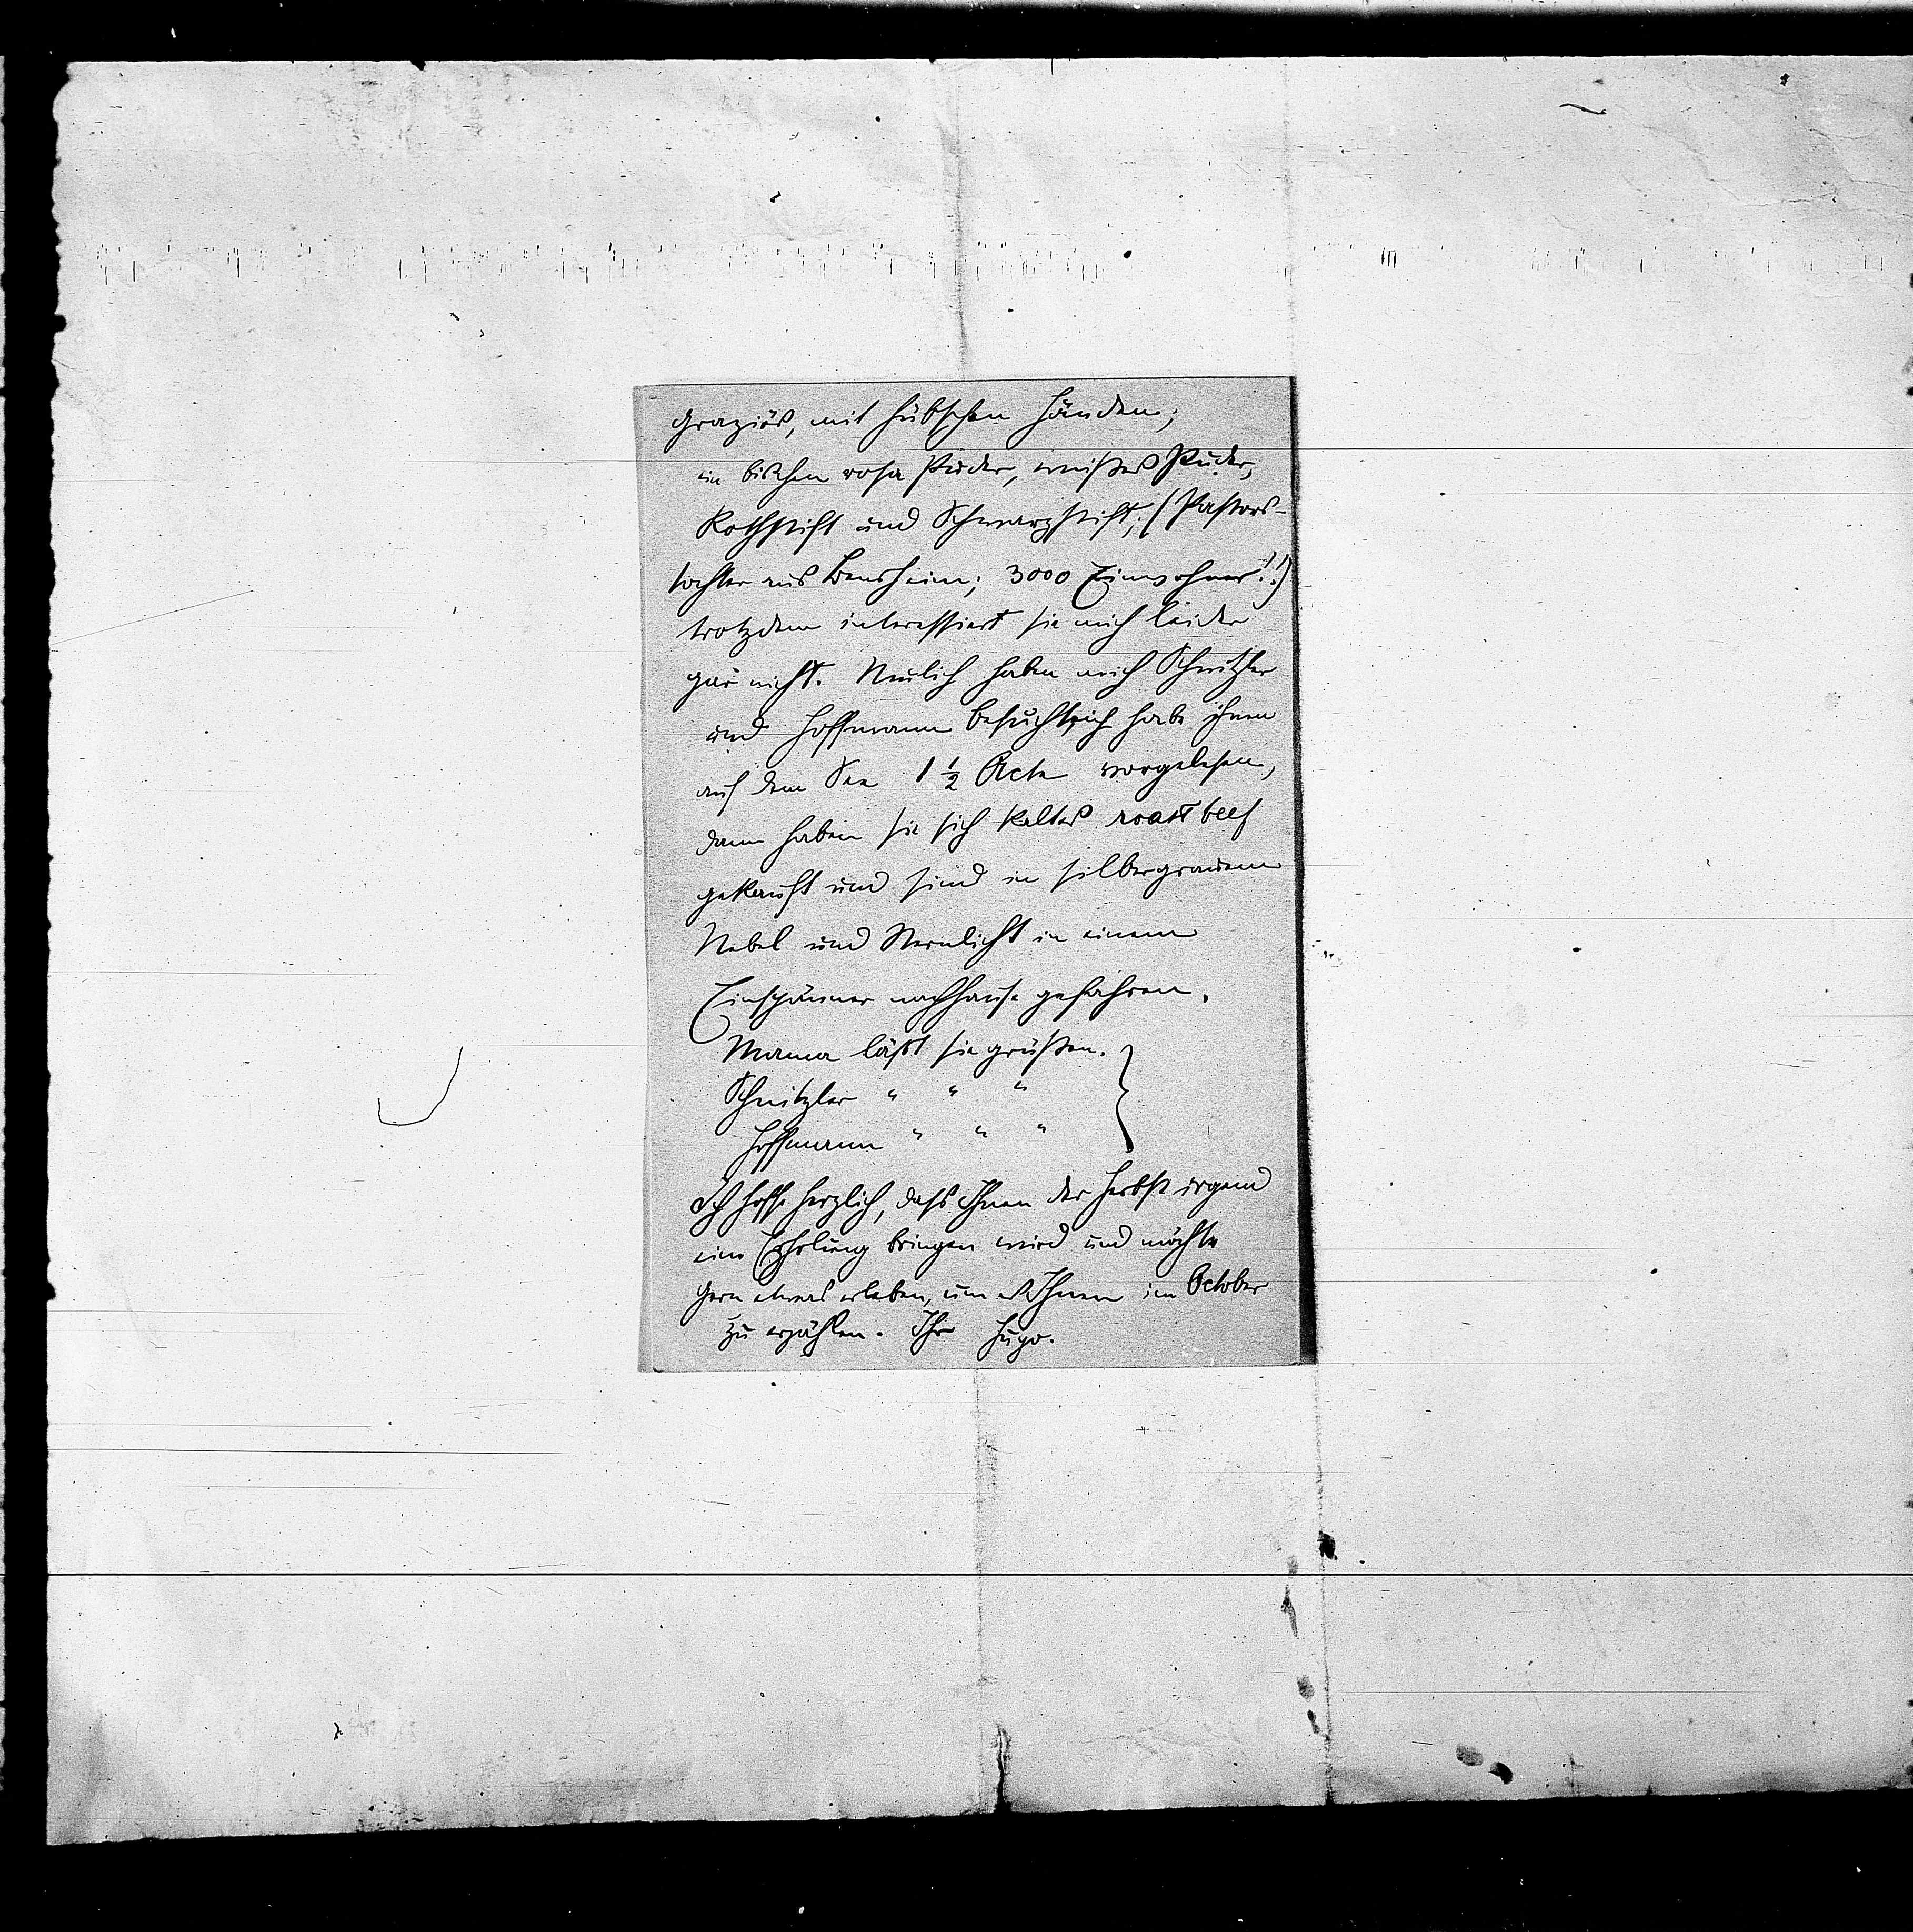 graziös, mit hübschen Händen;
ein bischen rosa Puder, weißes Puder,
Rothstift und Schwarzstift; (Pastors-
tochter aus Bensheim; 3000 Einwohner!!)
trotzdem interessiert sie mich leider
gar nicht. Neulich haben mich Schnitzler
und Hoffmann besucht, ich habe ihnen
auf dem See 1 1/2 Acte vorgelesen,
dann haben sie sich kaltes roastbeef
gekauft und sind in silbergrauem
Nebel und Sternlicht in einem
Einspänner nachhause gefahren.
Mama läßt sie grüßen.
Schnitzler " " "
Hoffmann " " "
Ich hoffe herzlich, dass Ihnen der Herbst irgend
eine Erholung bringen wird und möchte
gern etwas erleben, um es Ihnen im October
zu erzählen. Ihr Hugo.